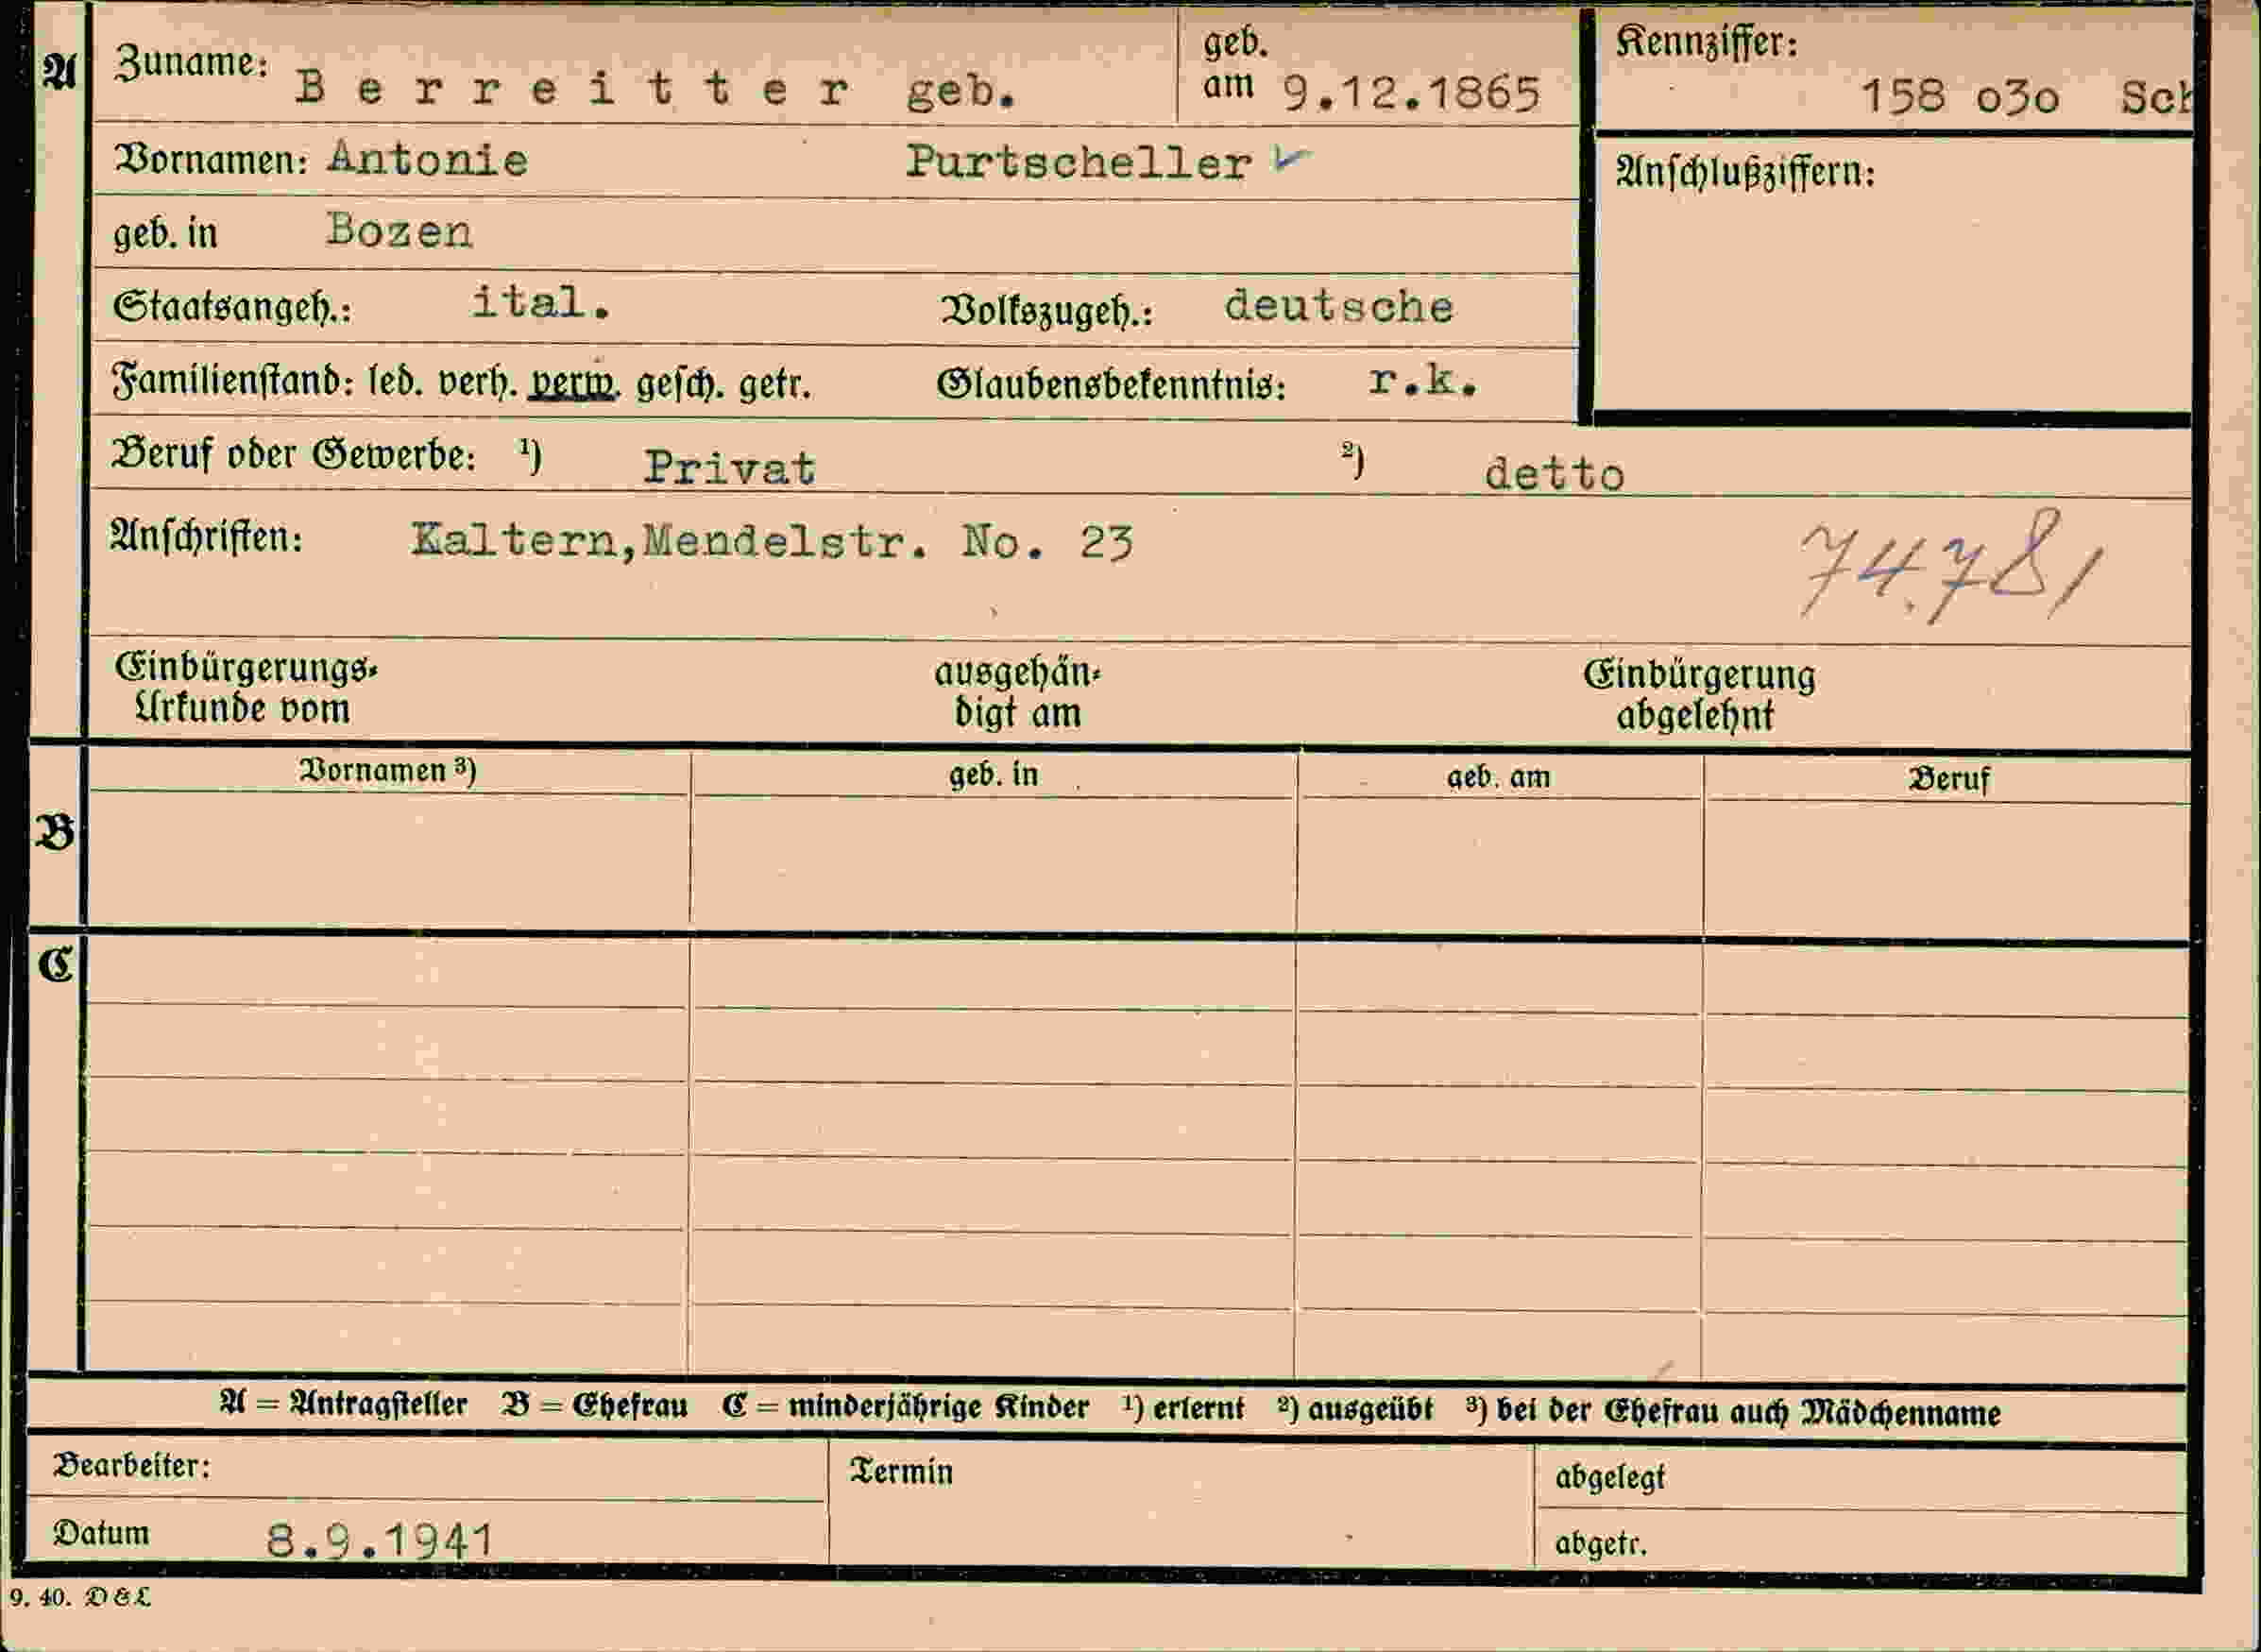 A Zuname: B e r r e i t t e r geb. geb. am 9.12.1865 Kennziffer: 158 o3o Sch
Vornamen: Antonie Purtscheller Anschlußziffern:
geb. in Bozen
Staatsangeh.: ital. Volkszugeh.: deutsche
Familienstand: led. verh. verw. gesch. getr. Glaubensbekenntnis: r.k.
Beruf oder Gewerbe: ¹) Privat ²) detto
Anschriften: Kaltern,Mendelstr. No. 23
74.781
Einbürgerungs- ausgehän- Einbürgerung
Urkunde vom digt am abgelehnt
Vornamen ³) geb. in geb. am Beruf
B
C
A = Antragsteller B = Ehefrau C = minderjährige Kinder ¹) erlernt ²) ausgeübt ³) bei der Ehefrau auch Mädchenname
Bearbeiter: Termin abgelegt
Datum 8.9.1941 abgetr.
9. 40. D & L